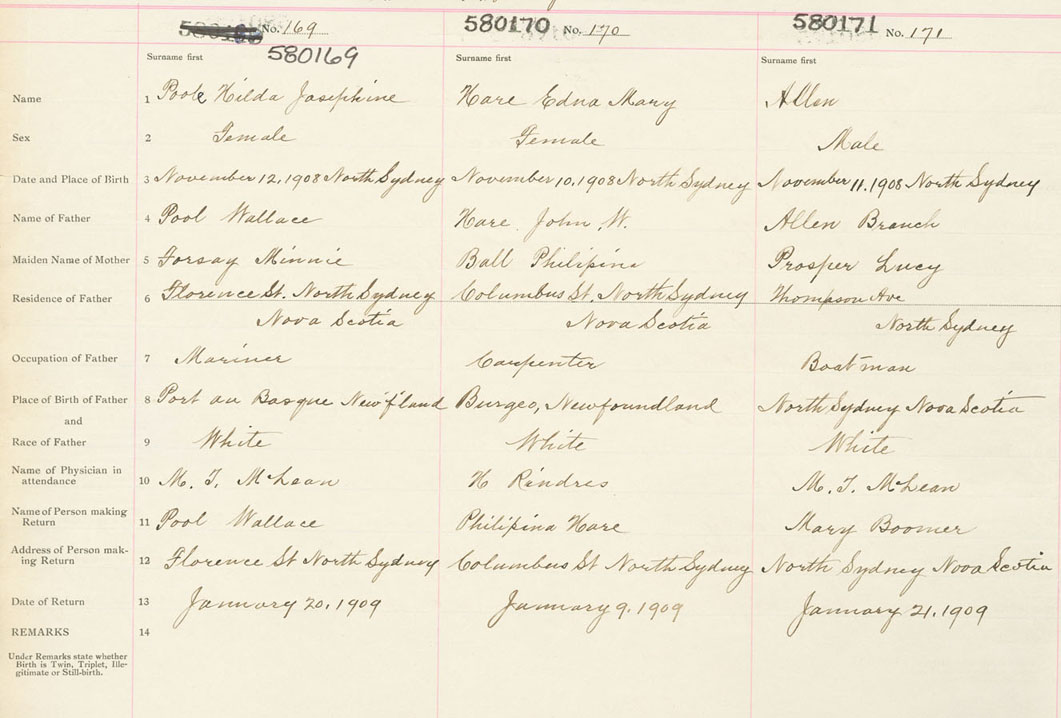 No. 169
580170 No. 170
580171 No. 171
580169
Surname first
Surname first
Surname first
Name 1 Poole Hilda Josephine Hare Edna Mary Allen
Sex 2 Female Female Male
Date and Place of Birth 3 November 12, 1908 North Sydney November 10, 1908 North Sydney November 11, 1908 North Sydney
Name of Father 4 Pool Wallace Hare John W. Allen Branch
Maiden Name of Mother 5 Forsay Minnie Ball Philipina Prosper Lucy
Residence of Father 6 Florence St. North Sydney Columbus St. North Sydney Thompson Ave
Nova Scotia Nova Scotia North Sydney
Occupation of Father 7 Mariner Carpenter Boatman
Place of Birth of Father 8 Port au Basque Newf'land Burgeo, Newfoundland North Sydney Nova Scotia
and
Race of Father 9 White White White
Name of Physician in
attendance 10 M. T. McLean H M. T. McLean
Name of Person making
Return 11 Pool Wallace Philipina Hare Mary Boomer
Address of Person mak-
ing Return 12 Florence St North Sydney Columbus St North Sydney North Sydney Nova Scotia
Date of Return 13 January 20, 1909 January 9, 1909 January 21, 1909
REMARKS 14
Under Remarks state whether
Birth is Twin, Triplet, Ille-
gitimate or Still-birth.